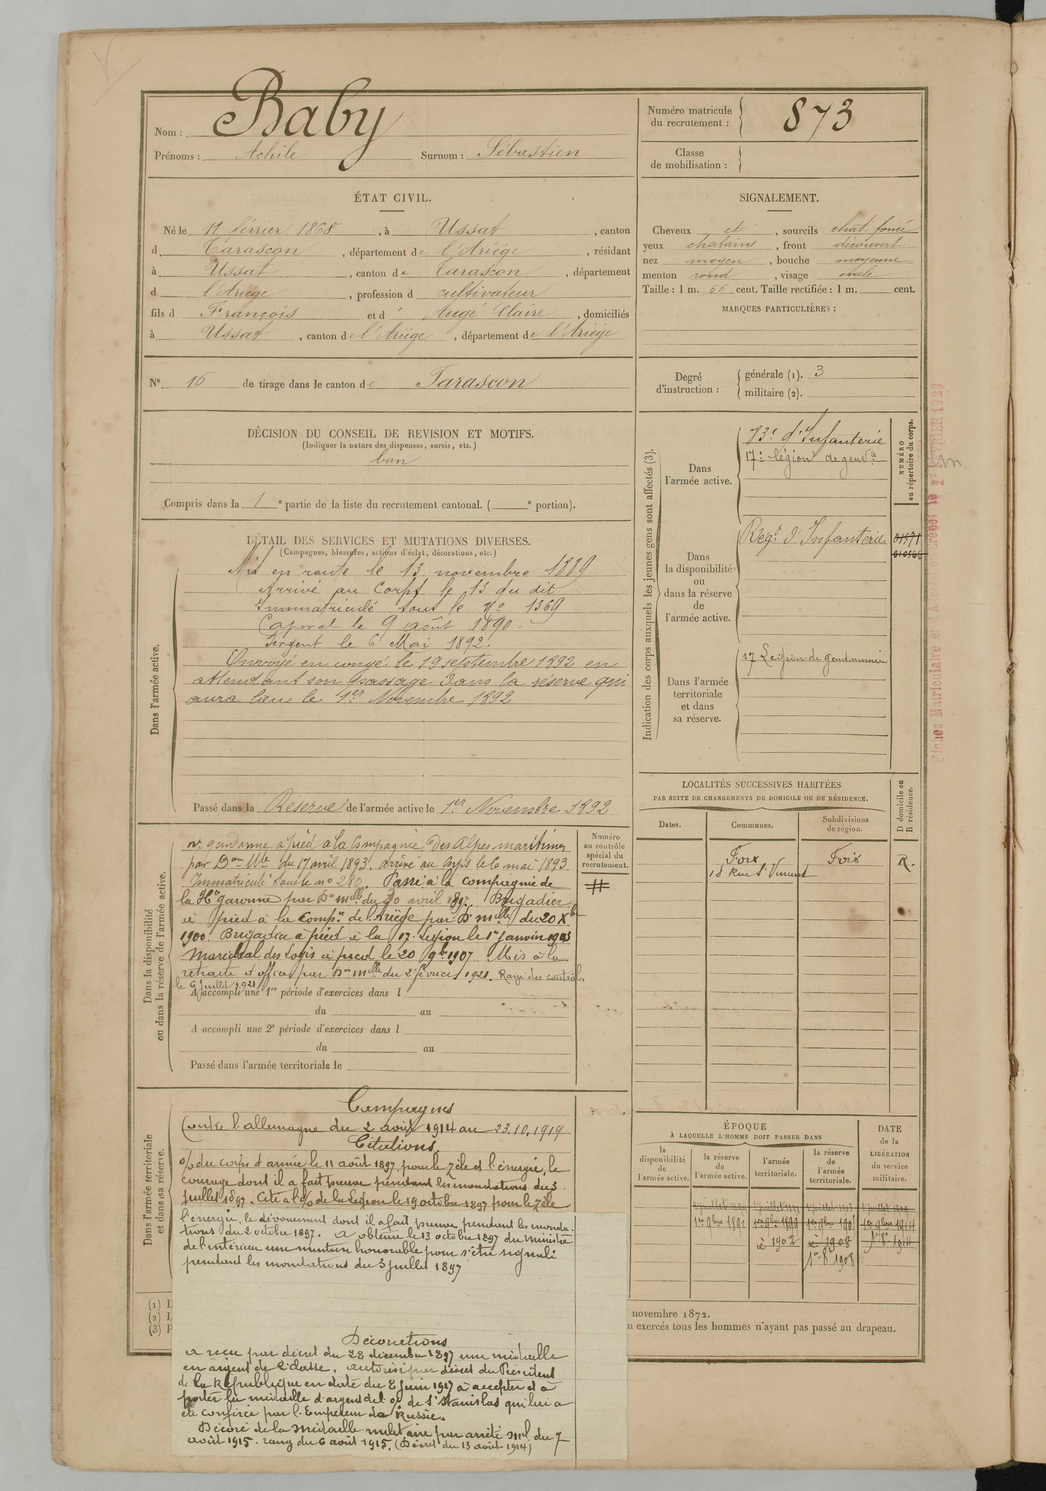 Nom : Baby
Prénoms : Achile Surnom : Sébastien
Numéro matricule du recrutement : 873
Classe de mobilisation :
ÉTAT CIVIL.
Né le 11 février 1868, à Ussat, canton
d Tarascon, département de l'Ariége, résidant
à Ussat, canton de Tarascon, département
d l'Ariége, profession d cultivateur
fils d François et d' Augé Claire, domiciliés
à Ussat, canton de l'Ariége, département de l'Ariége
N° 16 de tirage dans le canton de Tarascon
SIGNALEMENT.
Cheveux et, sourcils chat. foncé
yeux chatains, front découvert
nez moyen, bouche moyenne
menton rond, visage ovale
Taille : 1 m. 66 cent. Taille rectifiée : 1 m. cent.
MARQUES PARTICULIÈRES :
Degré d'instruction : générale (1). 3
militaire (2).
DÉCISION DU CONSEIL DE REVISION ET MOTIFS.
(Indiquer la nature des dispenses, sursis, etc.)
bon
Compris dans la 1e partie de la liste du recrutement cantonal. ( e portion).
DÉTAIL DES SERVICES ET MUTATIONS DIVERSES.
(Campagnes, blessures, actions d'éclat, décorations, etc.)
Dans l'armée active.
Mis en route le 13 novembre 1889
Arrivé au Corps le 13 du dit
Immatriculé sous le N° 1369
Caporal le 9 août 1890.
Sergent le 6 Mai 1892.
Envoyé en congé le 19 septembre 1892 en
attendant son passage dans la réserve qui
aura lieu le 1er Novembre 1892
Passé dans la Réserve de l'armée active le 1er Novembre 1892
Dans la disponibilité ou dans la réserve de l'armée active.
gendarme à pied à la Compagnie des Alpes maritimes
par Don Mlle du 17 avril 1893. arrivé au corps le 6 mai 1893
Immatriculé sous le n° 280. Passé à la compagnie de
la Hte garonne par Don mlle du 30 avril 1897 Brigadier
à pied à la Compie de l'Ariège par Don mlle du 20 Xbre
1900. Brigadier à pied à la 17e Légion le 1er janvier 1903
Maréchal des Logis à pied le 20 9bre 1907. Mis à la
retraite d'office par Don mlle du 2 février 1921. Rayé des controles
le 6 juillet 1921
A accompli une 1re période d'exercices dans l
du au
A accompli une 2e période d'exercices dans l
du au
Passé dans l'armée territoriale le
Numéro au contrôle spécial du recrutement.
Dans l'armée territoriale et dans sa réserve.
Campagnes
Contre l'allemagne du 2 août 1914 au 23.10.1919
Citations
o/ du corps d'armée le 11 août 1897 pour le zèle et l'énergie, le
courage dont il a fait preuve pendant les inondations du 3
juillet 1897. Cité à l'o/ de la Légion le 19 octobre 1897 pour le zèle
l'énergie, le dévouement dont il a fait preuve pendant les inonda-
tions du 2 octobre 1897. a obtenu le 13 octobre 1897 du Ministre
de l'intérieur une mention honorable pour s'être signalé
pendant les inondations du 3 juillet 1897
Décorations
a reçu par décret du 28 décembre 1897 une médaille
en argent de 2e classe. autorisé par décret du Président
de la République en date du 8 juin 1917 à accepter et à
porter la médaille d'argent de l'o/ de St Stanislas qui lui a
été conférée par l'Empereur de Russie.
Décoré de la médaille militaire par arrêté mel du 7
août 1915. rang du 6 août 1915. (Décret du 13 août 1914)
Indication des corps auxquels les jeunes gens sont affectés (3).
Dans l'armée active.
e d'Infanterie
17e légion de gendie
NUMÉRO au répertoire du corps.
Dans la disponibilité ou dans la réserve de l'armée active.
Regt d'Infanterie
Dans l'armée territoriale et dans sa réserve.
17 Legion de gendarmerie
LOCALITÉS SUCCESSIVES HABITÉES
PAR SUITE DE CHANGEMENTS DE DOMICILE OU DE RÉSIDENCE.
Dates. Communes. Subdivisions de région. D domicile ou R résidence.
Foix Foix R.
18 Rue St Vincent
ÉPOQUE
À LAQUELLE L'HOMME DOIT PASSER DANS
la disponibilité de l'armée active.
la réserve de l'armée active.
l'armée territoriale.
la réserve de l'armée territoriale.
DATE de la LIBÉRATION du service militaire.
1er 9bre 1892
à 1902
à 1908
1er 8bre 1908
(1)
(2)
(3)
novembre 1872.
n exercés tous les hommes n'ayant pas passé au drapeau.